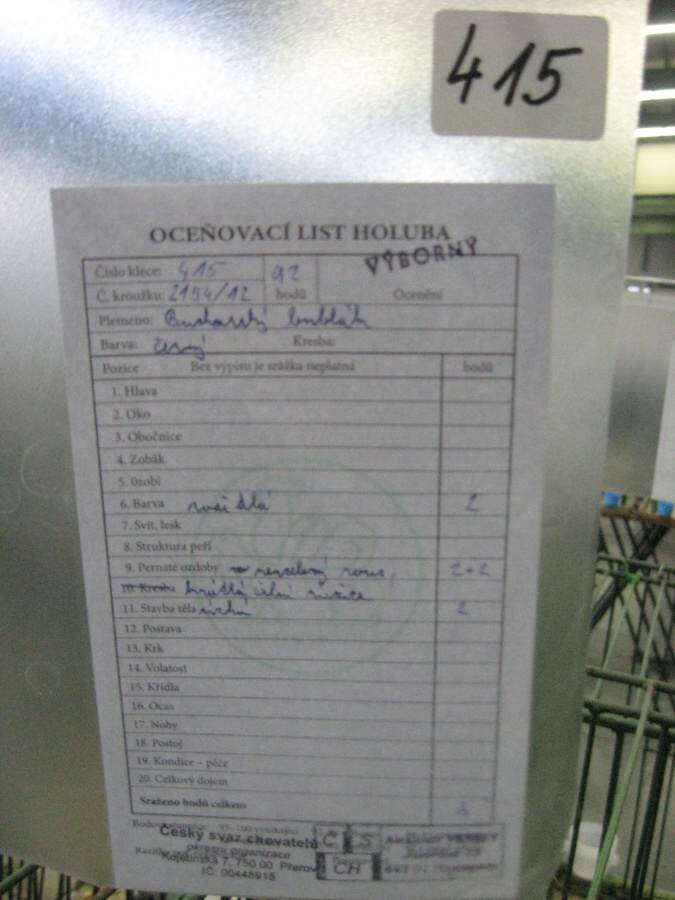 415
OCEŇOVACÍ LIST HOLUBA
VÝBORNÝ
Číslo klece: 415 92
Č. kroužku: 2154/12 bodů Ocenění
Plemeno: Bucharský bublák
Barva: černý Kresba:
Pozice Bez výpisu je srážka neplatná bodů
1. Hlava
2. Oko
3. Obočnice
4. Zobák
5. Ozobí
6. Barva 2
7. Svit, lesk
8. Struktura peří
9. Pernaté ozdoby rous, 2+2
10. Kresba
11. Stavba těla 2
12. Postava
13. Krk
14. Volatost
15. Křídla
16. Ocas
17. Nohy
18. Postoj
19. Kondice – péče
20. Celkový dojem
Sraženo bodů celkem
Český svaz chovatelů
okresní organizace
Kojetínská 7, 750 00 Přerov
IČ: 00448915
Č S
CH